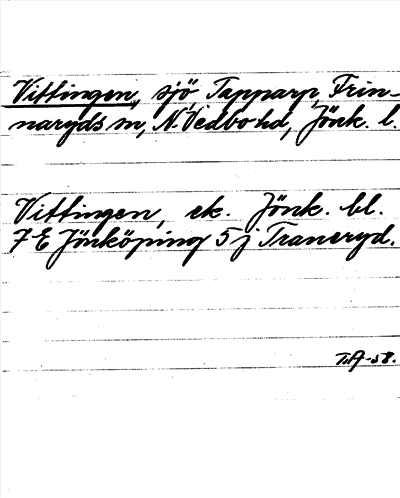 Vittingen, sjö, Tapparp, Frin-
naryds sn, N. Vedbo hd, Jönk. l.
Vittingen, ek. Jönk. bl.
7 E Jönköping 5 j Traneryd.